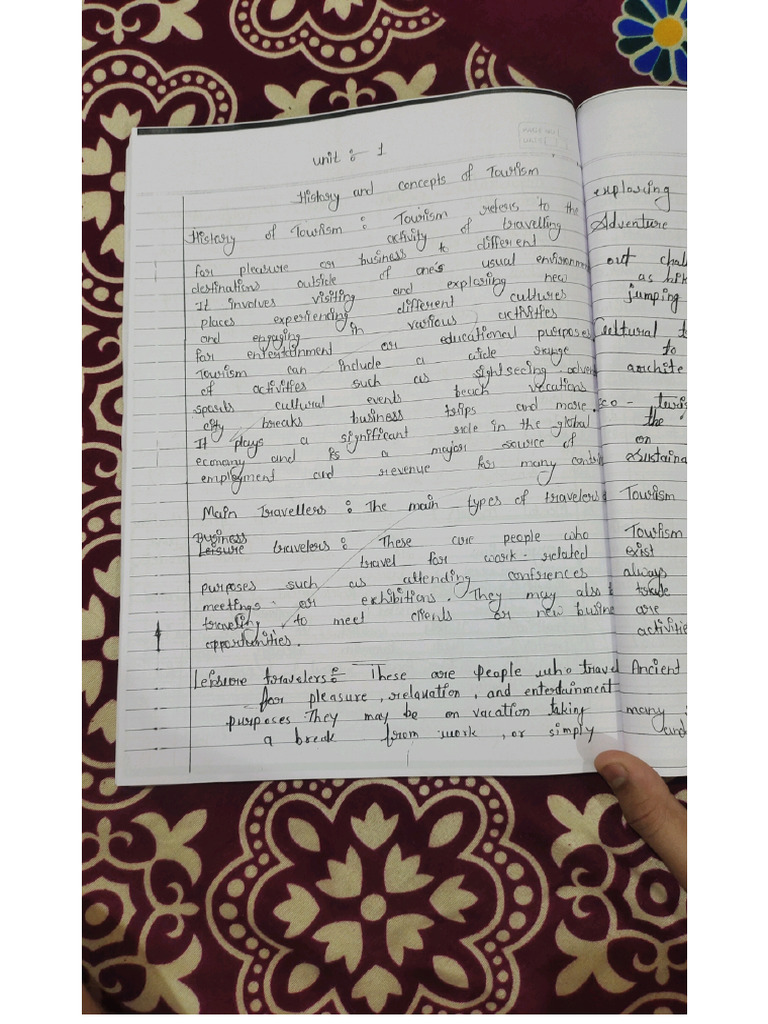 unit :- 1
History and concepts of Tourism
History of Tourism : Tourism refers to the
activity of travelling
for pleasure or business to different
destinations outside of one's usual environment
It involves visiting and exploring new
places experiending different cultures
and engaging in various activities
for entertainment or educational purposes
Tourism can include a wide range
of activities such as sightseeing adven
sports cultural events beach vacations
city breaks business trips and more.
It plays a significant role in the global
economy and is a major source of
employment and revenue for many contri
Main Travellers : The main types of travelers
Business
Leisure travelers : These are people who
travel for work-related
purposes such as attending conferences
meetings or exhibitions. They may also
traveling to meet clients or new busine
opportunities.
Leisure travelers : These are people who travel
for pleasure, relaxation, and entertainment
purposes They may be on vacation taking
a break from work, or simply
exploring
Adventure
out chall
as hik
jumping
Cultural t
to
archite
Eco - turis
the
on
sustaina
Tourism
Tourism
exist
always
trade
are
activitie
Ancient
many